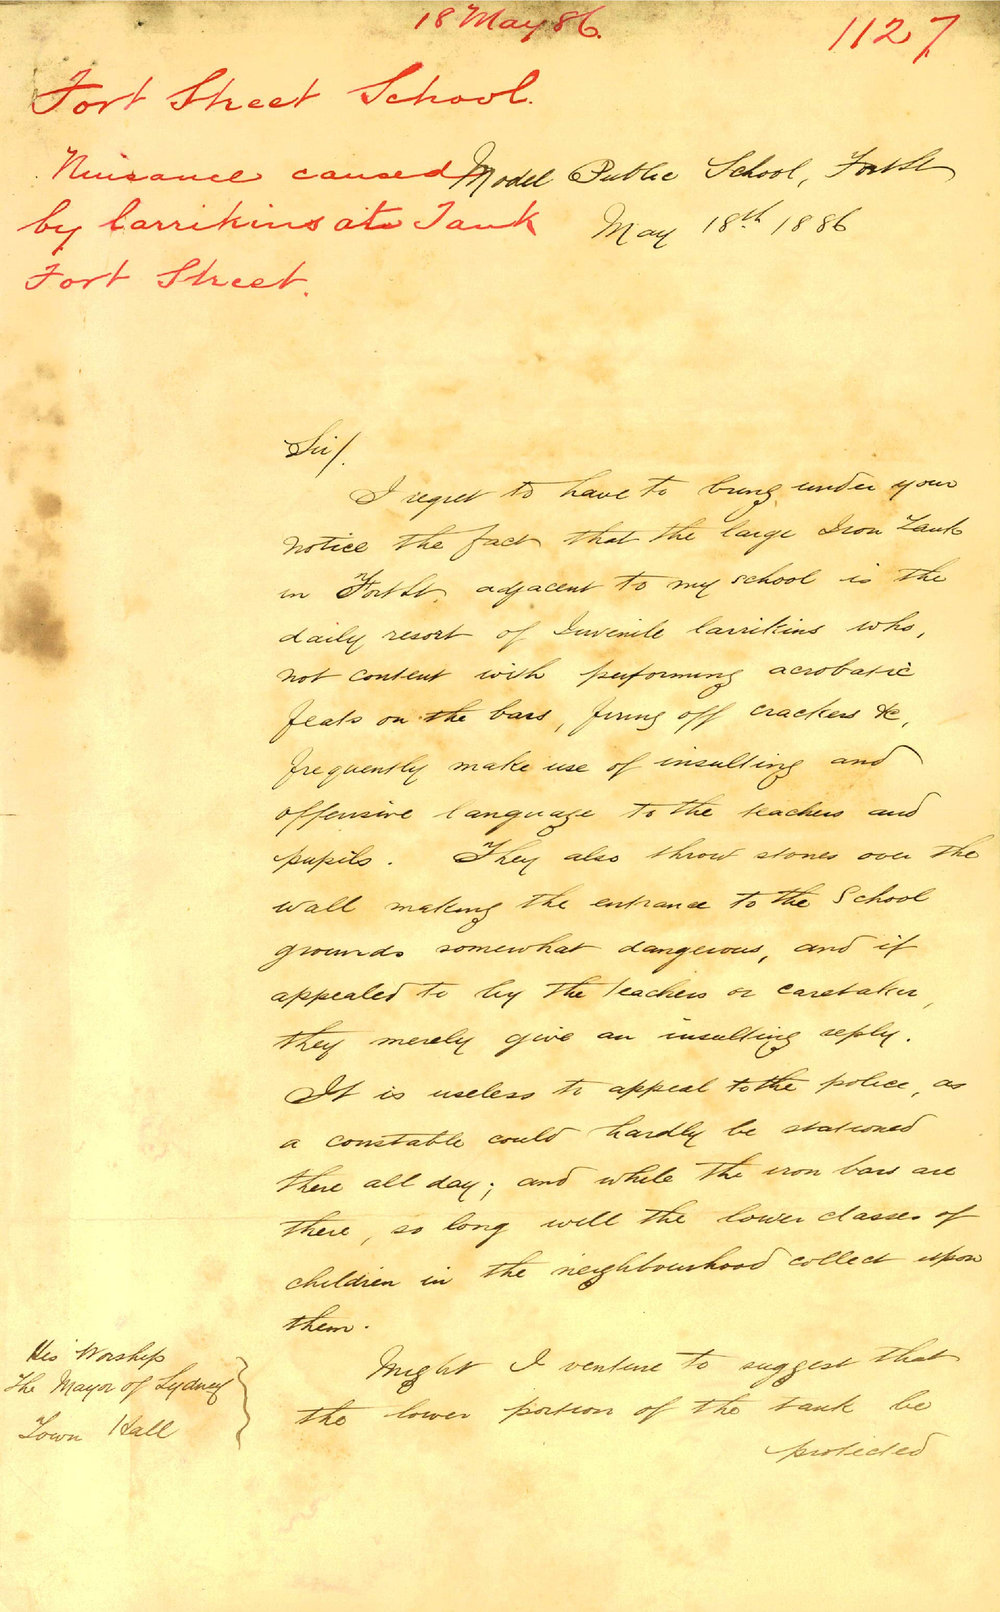 18 May 86.
1127
Fort Street School.
Nuisance caused
by larrikins at Tank
Fort Street.
Model Public School, Fort St
May 18th 1886
Sir/.
I regret to have to bring under your
notice the fact that the large Iron Tank
in Fort St. adjacent to my school is the
daily resort of Juvenile larrikins who,
not content with performing acrobatic
feats on the bars, firing off crackers &c,
frequently make use of insulting and
offensive language to the teachers and
pupils. They also throw stones over the
wall making the entrance to the School
grounds somewhat dangerous, and if
appealed to by the teachers or caretaker,
they merely give an insulting reply.
It is useless to appeal to the police, as
a constable could hardly be stationed
there all day; and while the iron bars are
there, so long will the lower classes of
children in the neighbourhood collect upon
them.
Might I venture to suggest that
the lower portion of the tank be
protected
His Worship
The Mayor of Sydney
Town Hall